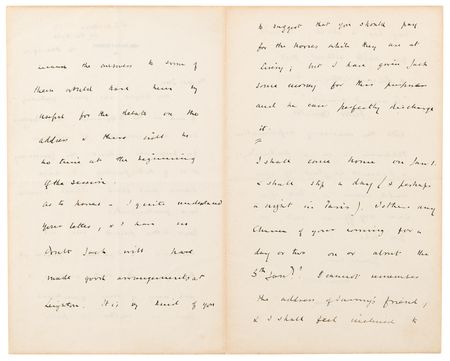 the answers to some of
them would have been
useful for the debate on the
address & there will be
no time at the beginning
of the session.
As to horses – I quite understand
your letter, & I have no
doubt Jack will have
made good arrangements at
Leighton. It is very kind of you
to suggest that you should pay
for the horses while they are at
livery; but I have given Jack
some money for this purpose
and he can perfectly discharge
it.
I shall come home on Jan 1.
& shall stop a day (& perhaps
a night in Paris). Is there any
chance of your coming for a
day or two on or about the
5th Jan?? I cannot remember
the address of friend,
& I shall feel inclined to